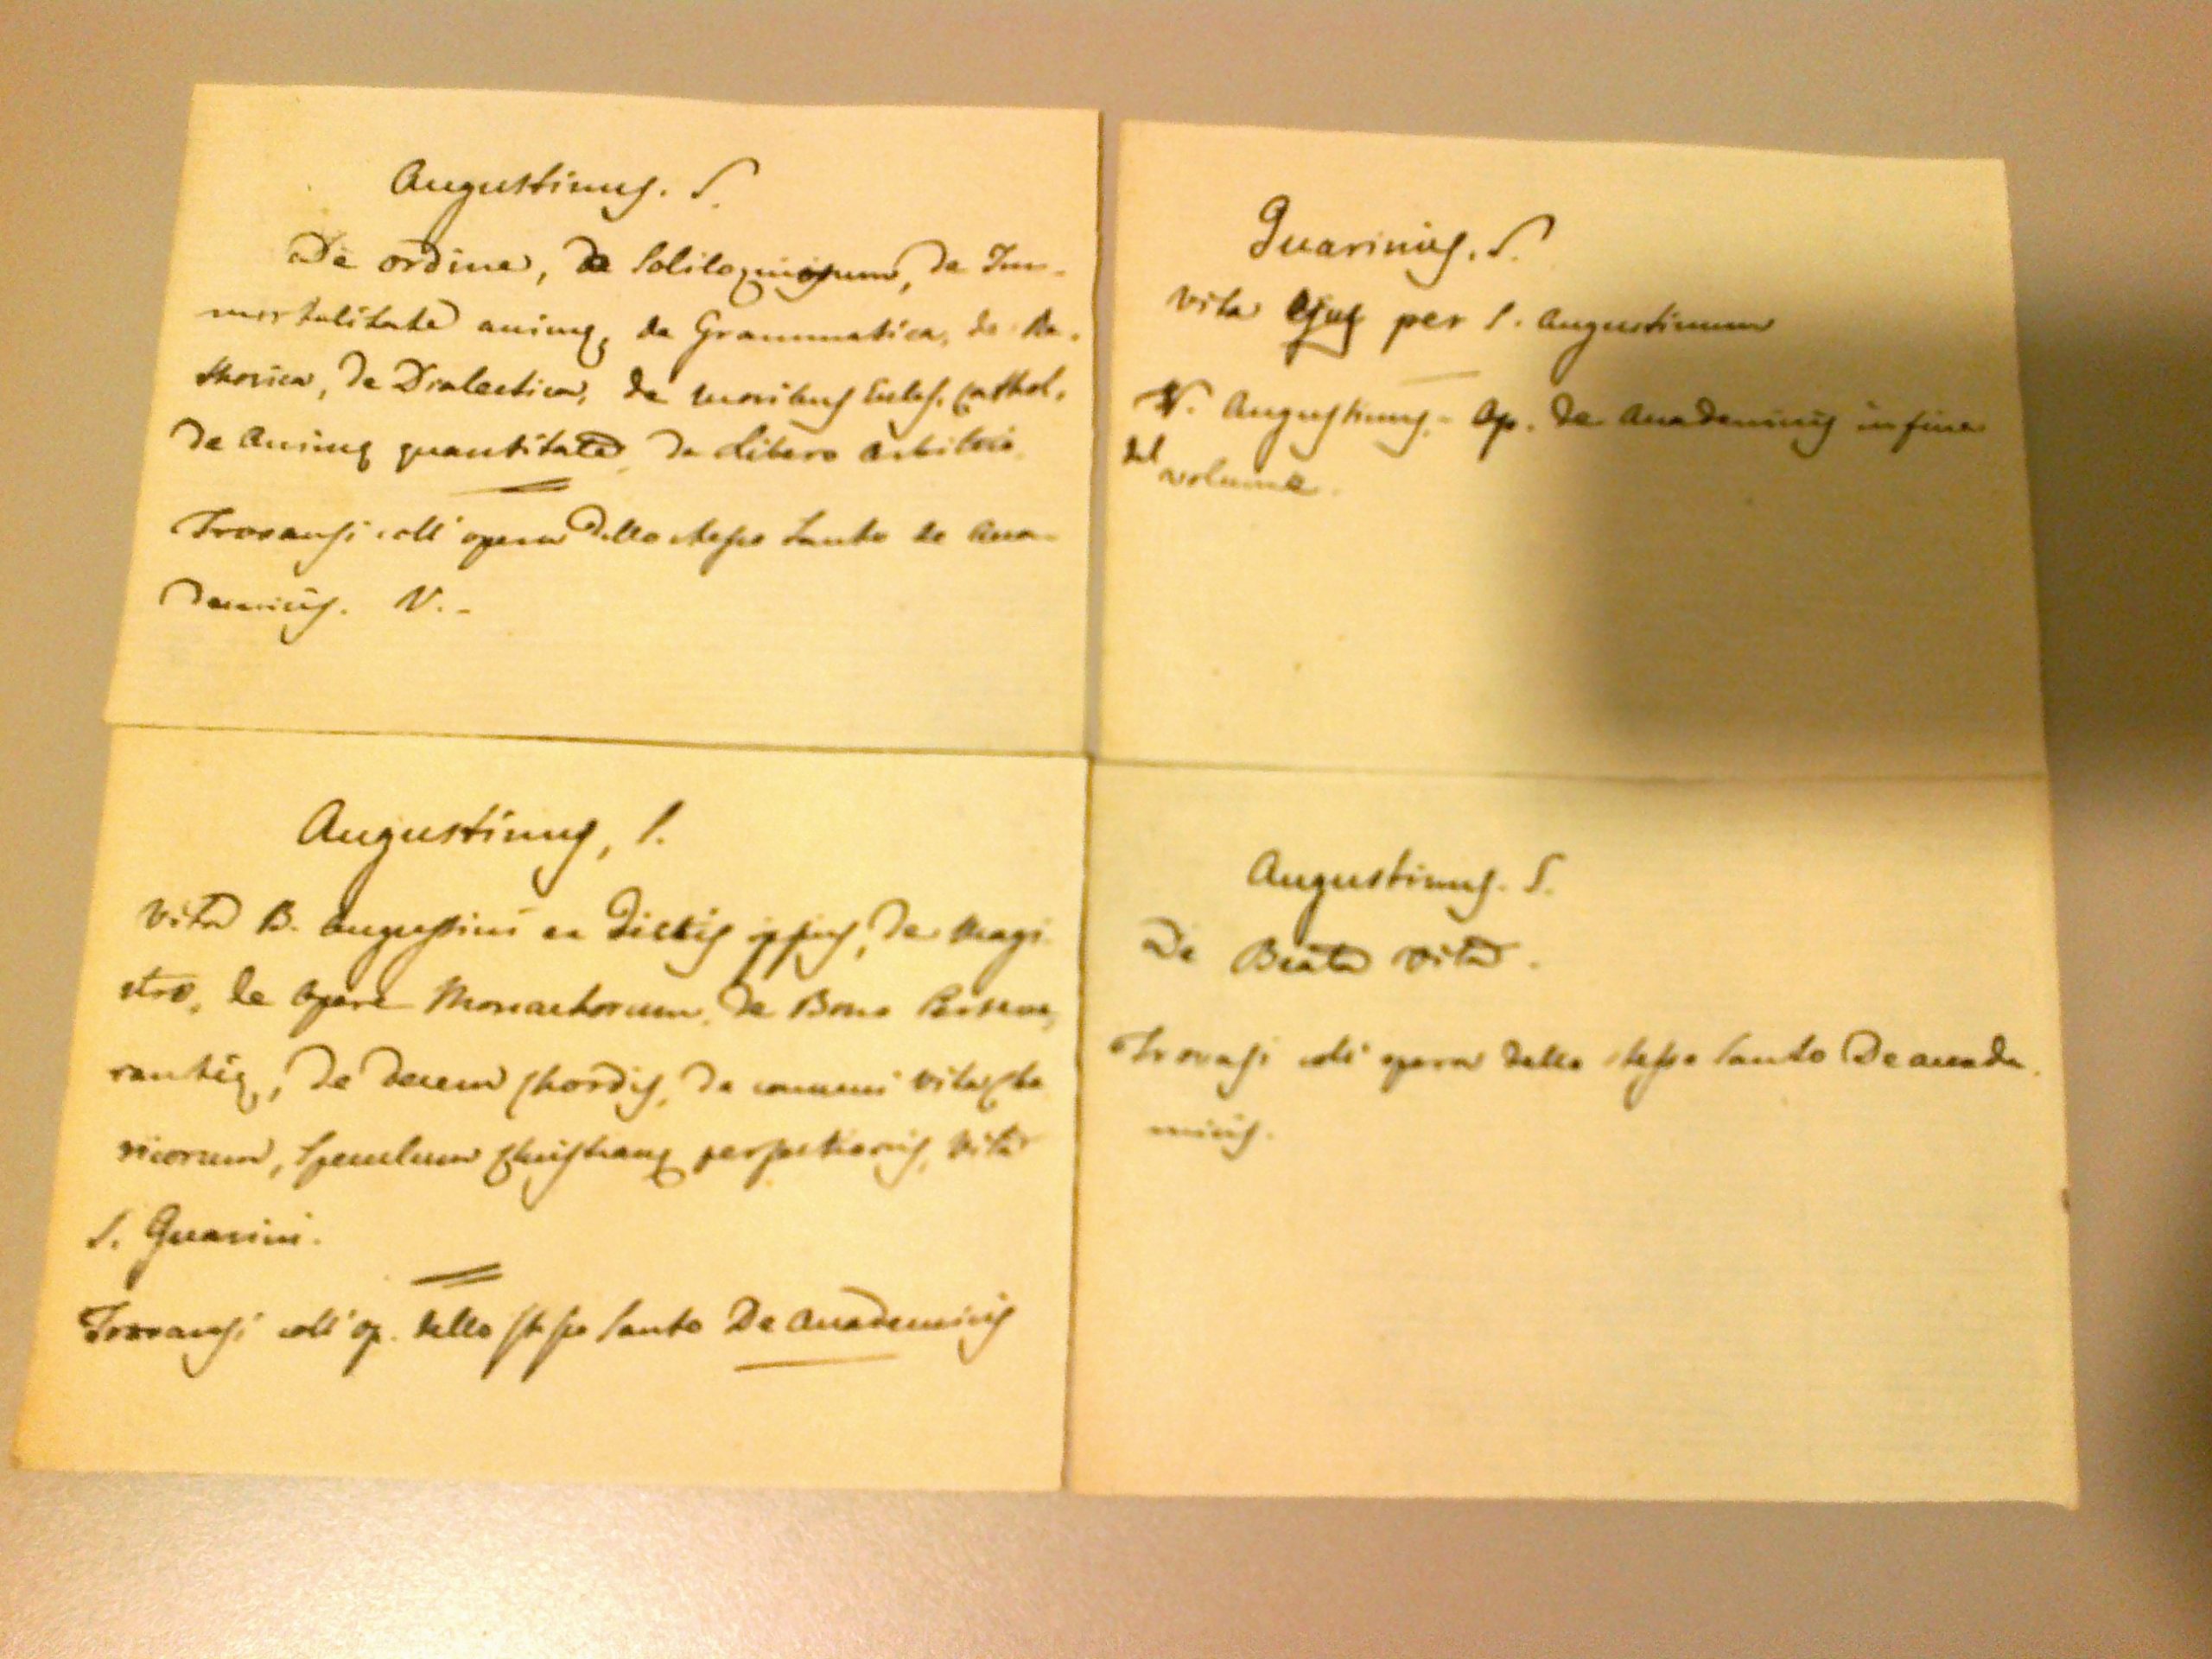 Augustinus. S.
De ordine, de Soliloquiorum, de Im-
mortalitate animę, de Grammatica, de Re-
thorica, de Dialectica, de moribus Eccles. Cathol.
de Animę quantitate, de Libero Arbitrio.
Trovansi coll' opera dello stesso Santo de Aca-
demicis. V.-
Guarinus. S.
vita ejus per S. Augustinum
V. Augustinus.- Op. de Academicis in fine
del volume.
Augustinus, S.
Vita B. Augustini ex dictis ipsius, de Magi
stro, de opere Monachorum, de Bono Perseve,
rantię, De decem Chordis, De communi vita Cle
ricorum, Speculum Christianę perfectionis, vita
S. Guarini.
Trovansi coll' op. dello stesso Santo De Academicis
Augustinus. S.
De Beata vita.
Trovasi coll' opera dello stesso Santo De acade.
micis.